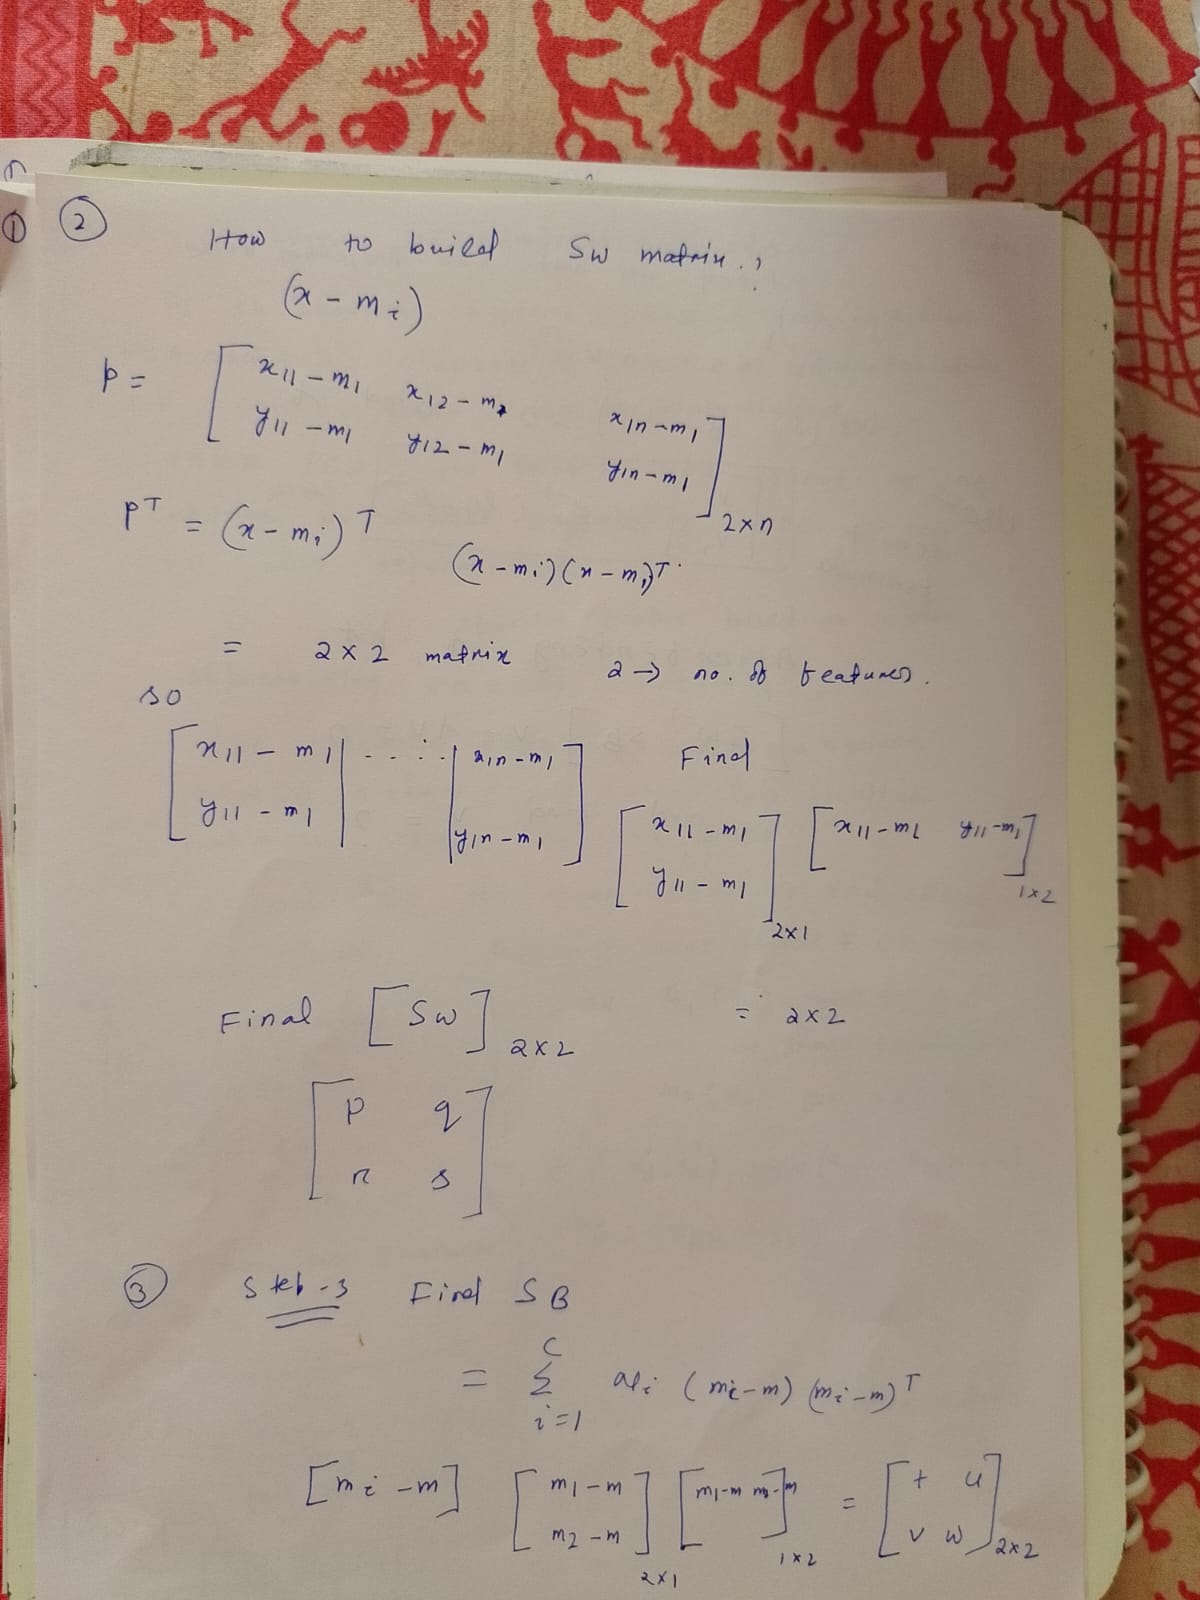 ①
②
How to build Sw matrix.?
(x - mi)
p = [ x11 - m1 x12 - m1 x1n - m1
y11 - m1 y12 - m1 y1n - m1 ] 2×n
pT = (x - mi)T
(x - mi)(x - mi)T.
= 2×2 matrix 2 → no. of features.
so
[ x11 - m1 | - - . . . | x1n - m1 ] Find
[ y11 - m1 | | y1n - m1 ]
[ x11 - m1 ] [ x11 - m1 y11 - m1 ] 1×2
[ y11 - m1 ] 2×1
Final [ Sw ] 2×2 = 2×2
[ p q
r s ]
③ Step-3 Find SB
= Σ i=1 C (mi - m) (mi - m)T
[mi - m] [ m1 - m ] [ m1 - m m2 - m ] 1×2 = [ t u
[ m2 - m ] 2×1 v w ] 2×2